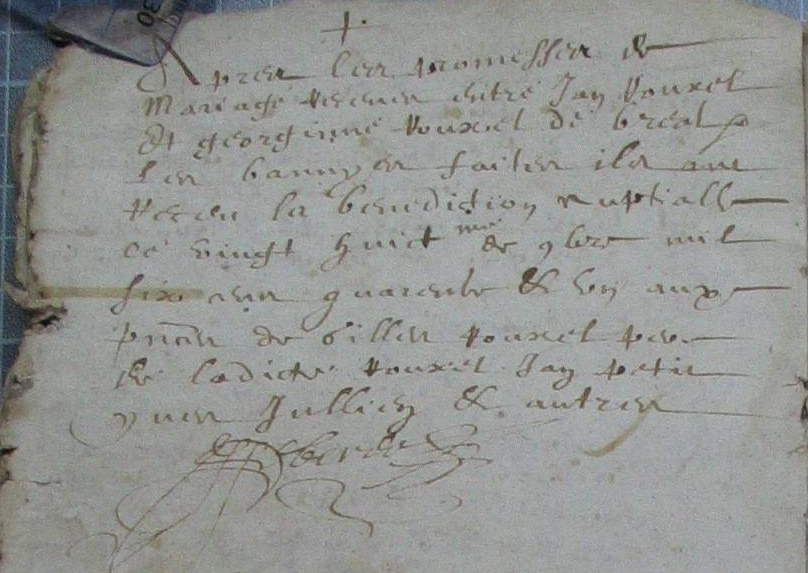 +
Apres les promesses de
Mariage receues entre Jan Rouxel
Et georginne Rouxel de breal
les bannyes faites ils ont
Receu la benediction nuptialle
ce vingt huict me de 9bre mil
six cen quarente & un aux
pnces de Gilles Rouxel pere
de ladicte Rouxel Jan petit
yves Jullien & autres